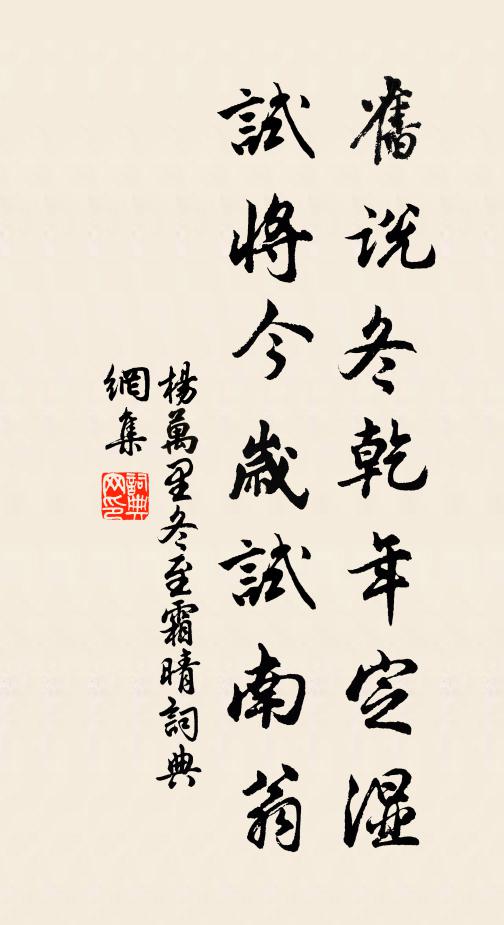 舊説冬乾年定濕
試將今歲試南翁
楊萬里冬至霜晴詞典
網集
詞典
网印